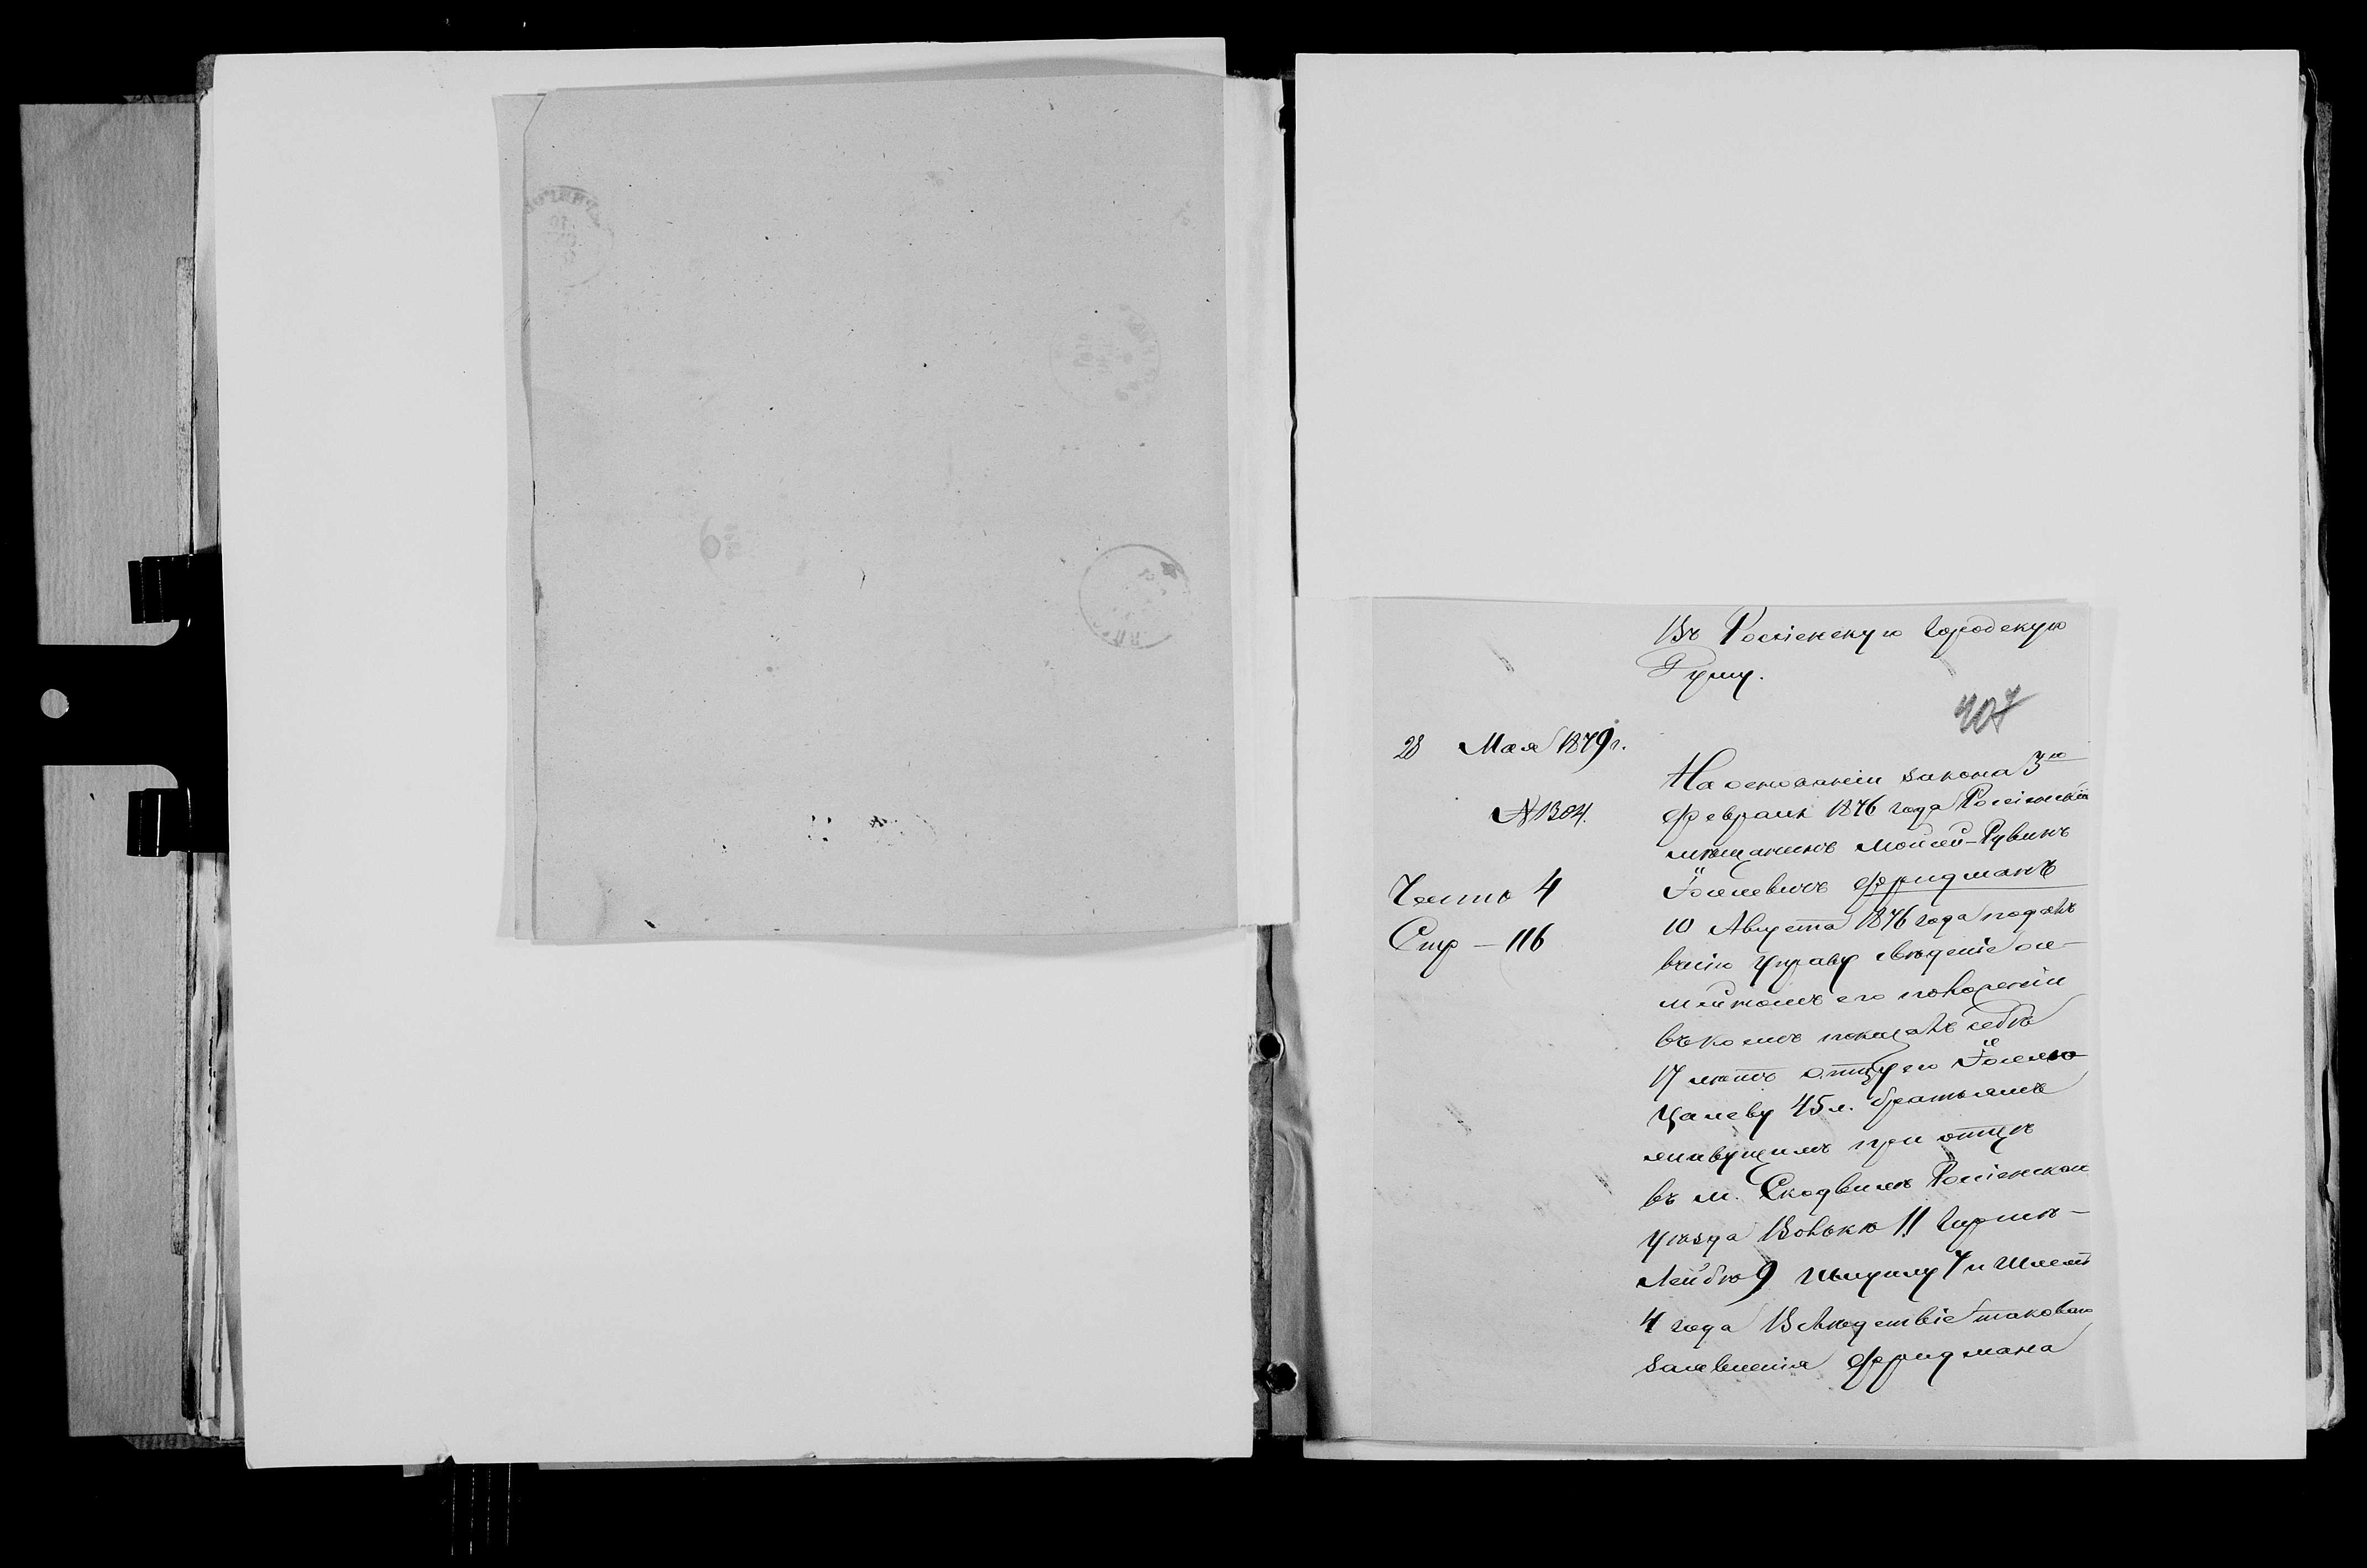 Въ Россіенскую Городскую
Думу.
407
28 Мая 1879 г.
№ 1304.
Часть 4
Стр – 116
На основаніи закона 3го
Февраля 1876 года Россіенскій
мѣщанинъ Мойсей-Рувинъ
Іоселевичъ Фридманъ
10 Августа 1876 года подалъ
въ сію Управу свѣденіе о се-
мейномъ его положеніи
въ коемъ показалъ себѣ
17 лѣтъ отцу его Іоселю
45 л. братьямъ
живущимъ при отцѣ
въ м. Скодвилѣ Россіенскаго
уѣзда 11 Гиршѣ-
Лейбѣ 9 7 и
4 года Вслѣдствіе таковаго
заявленія Фридмана